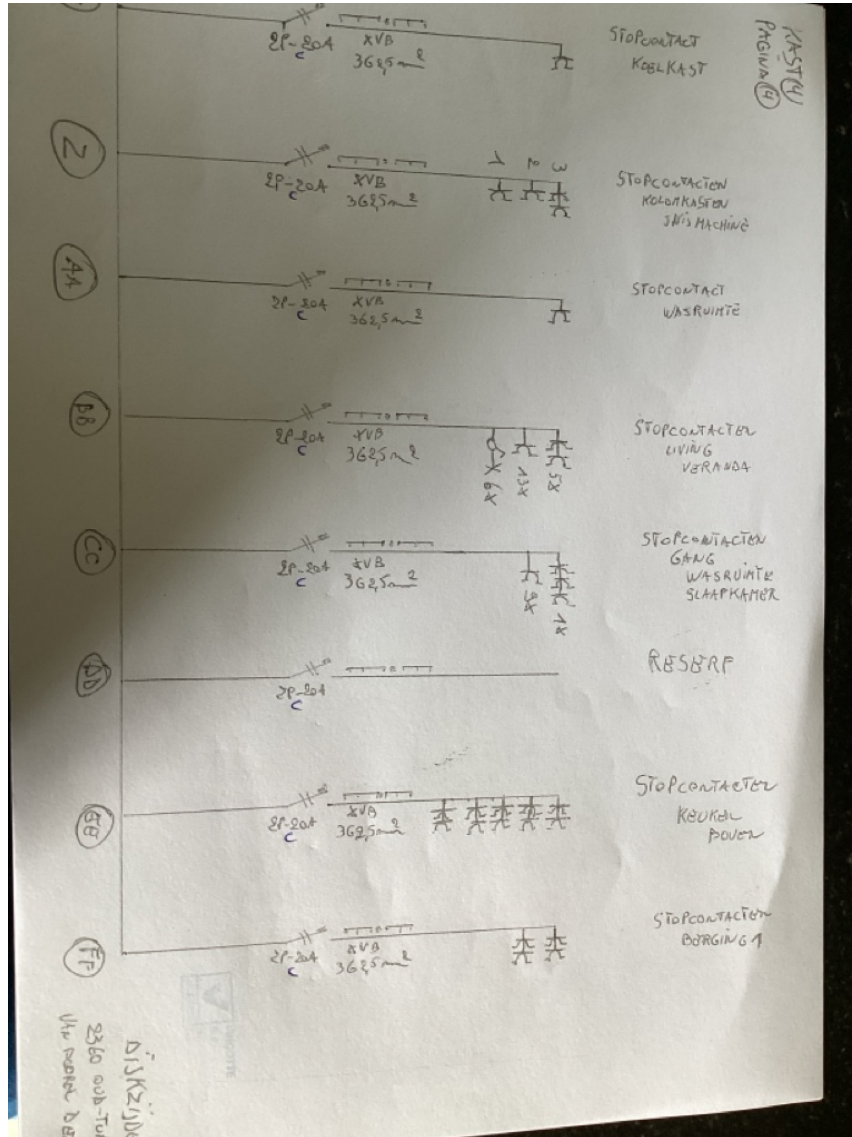 KAST (4)
PAGINA (4)
2P-20A
C
XVB
3G2,5mm²
STOPCONTACT
KOELKAST
Z
2P-20A
C
XVB
3G2,5mm²
1 2 3
STOPCONTACTEN
KOLOMKASTEN
SNIJMACHINE
AA
2P-20A
C
XVB
3G2,5mm²
STOPCONTACT
WASRUIMTE
BB
2P-20A
C
XVB
3G2,5mm²
6X 13X 5X
STOPCONTACTEN
LIVING
VERANDA
CC
2P-20A
C
XVB
3G2,5mm²
9X 1X
STOPCONTACTEN
GANG
WASRUIMTE
SLAAPKAMER
DD
2P-20A
C
RESERF
EE
2P-20A
C
XVB
3G2,5mm²
STOPCONTACTEN
KEUKEN
BOVEN
FF
2P-20A
C
XVB
3G2,5mm²
STOPCONTACTEN
BERGING 1
DIJKZIJDE
2360 OUD-TU
VAN